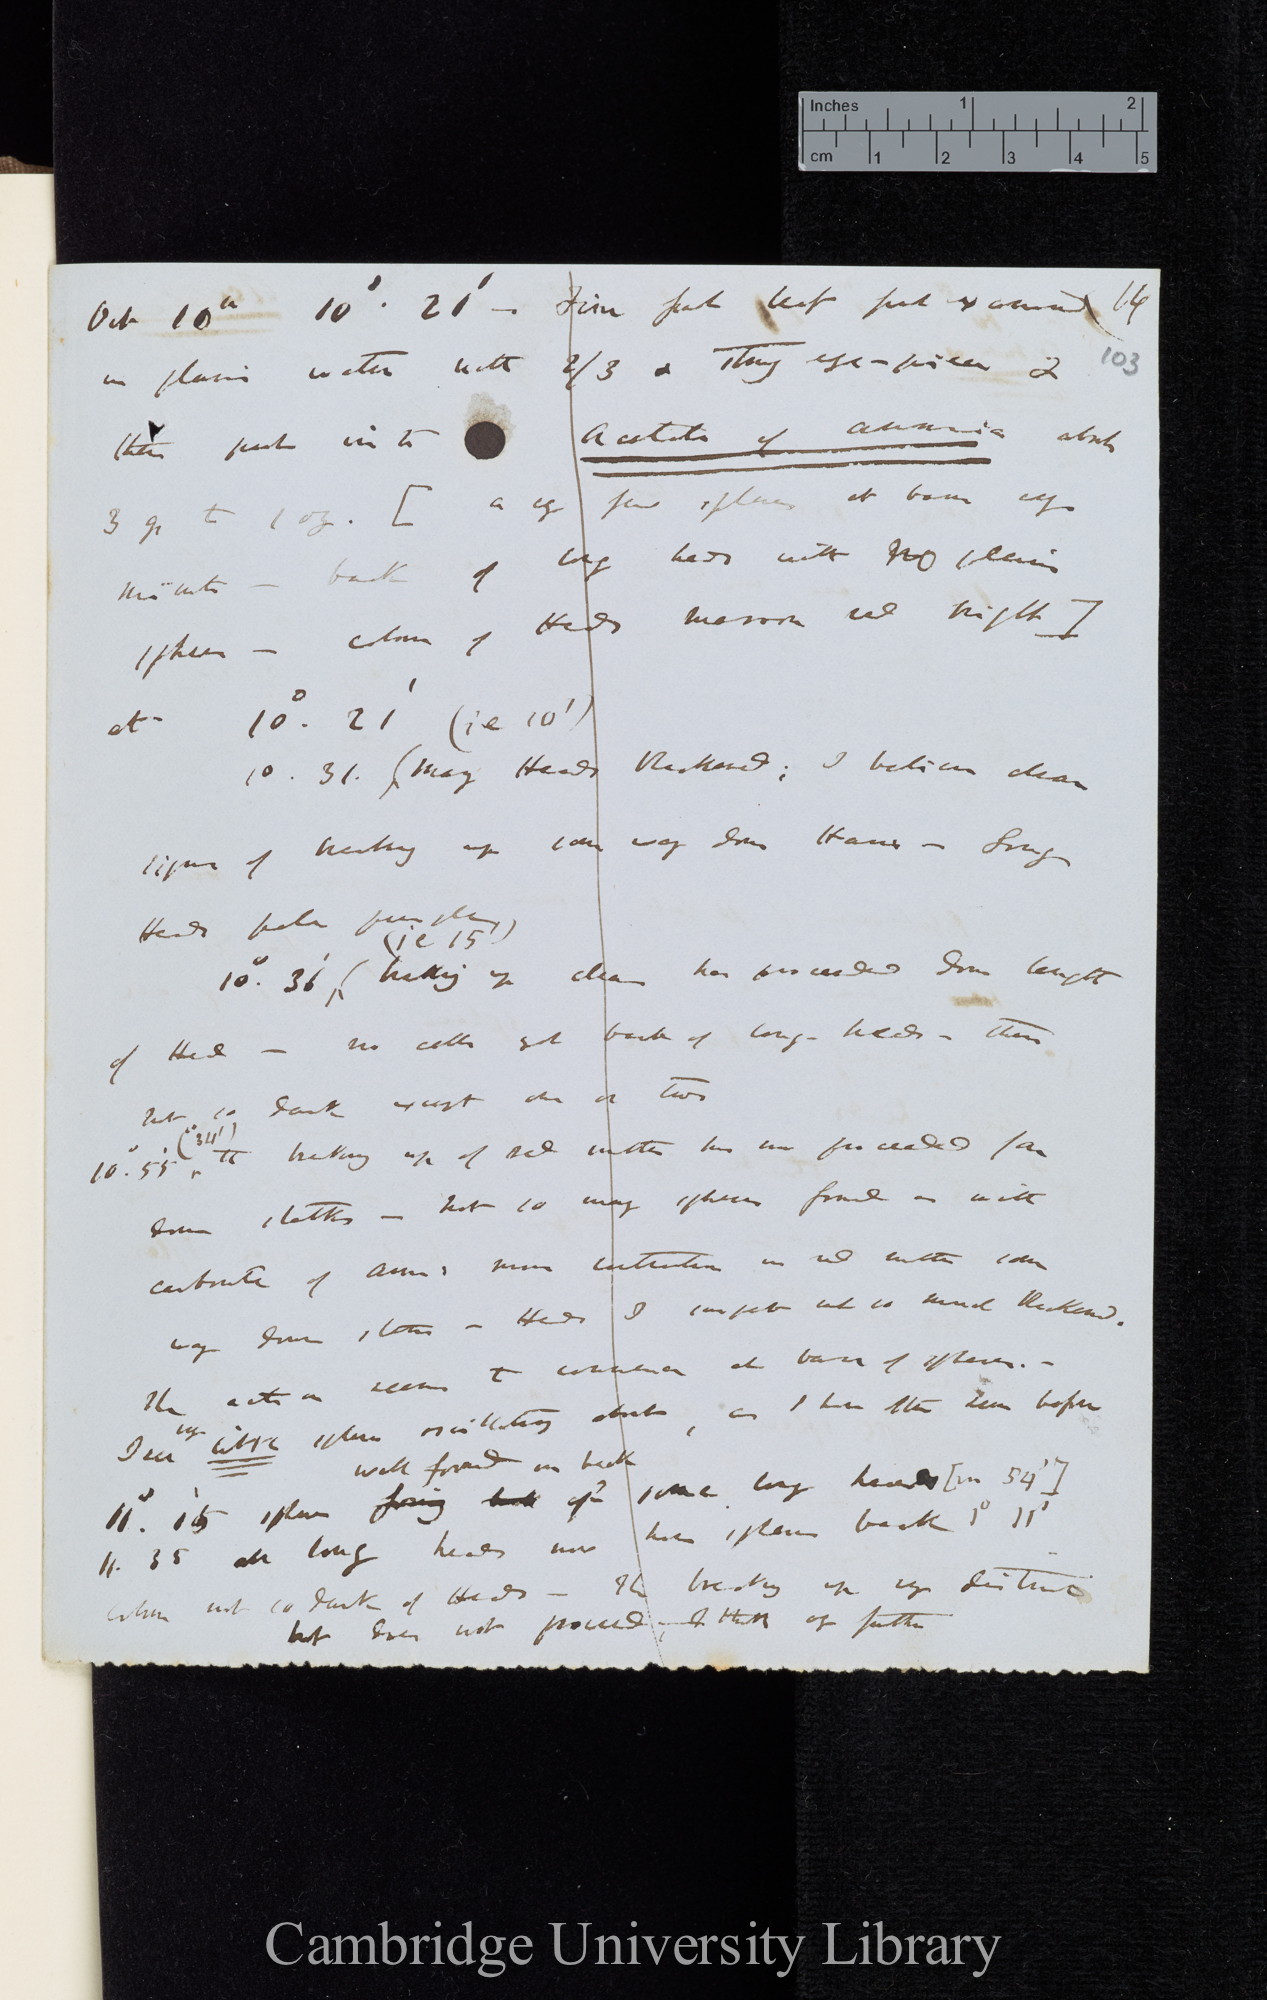 Inches 1 2
cm 1 2 3 4 5
Oct 10th 10°. 21' — Fine fresh leaf just examined (14
103
in plain water with 2/3 & strong eye-piece &
then put into Acetate of ammonia about
3 gr to 1 oz. [ a very few spheres at base very
minute — back of long heads with no plain
spheres — colour of Heads maroon red bright]
at 10°. 21' (ie 10')
10. 31. (many Heads blackened; I believe clear
signs of breaking up some way down Hairs — Long
Heads pale purple)
(ie 15')
10°. 36' (breaking up clear has proceeded down length
of Head — no cells yet back of long-heads — these
not so dark except one or two
(34')
10°. 55' The breaking up of red matter has now proceeded far
down stalks — not so many spheres formed as with
carbonate of Amm: more in red matter some
way down stalks — Heads I suspect not so much blackened.
The action seems to commence at base of spheres. —
I see very little spheres oscillating about, as I have often seen before
well formed on back
11°. 15' spheres forming back of some long heads [in 54']
11. 35 all long heads now have spheres back 1° 11'
colour not so dark of Heads — The breaking up very distinct
but does not proceed, I think any further
Cambridge University Library